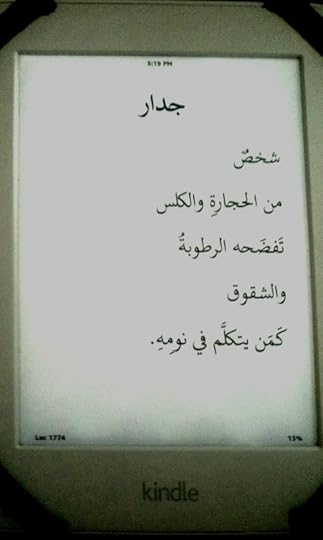 5:19 PM
جدار
شخصٌ
من الحجارةِ والكلس
تَفضَحه الرطوبةُ
والشقوق
كَمَن يتكلَّم في نومِهِ.
Loc 1774
13%
kindle